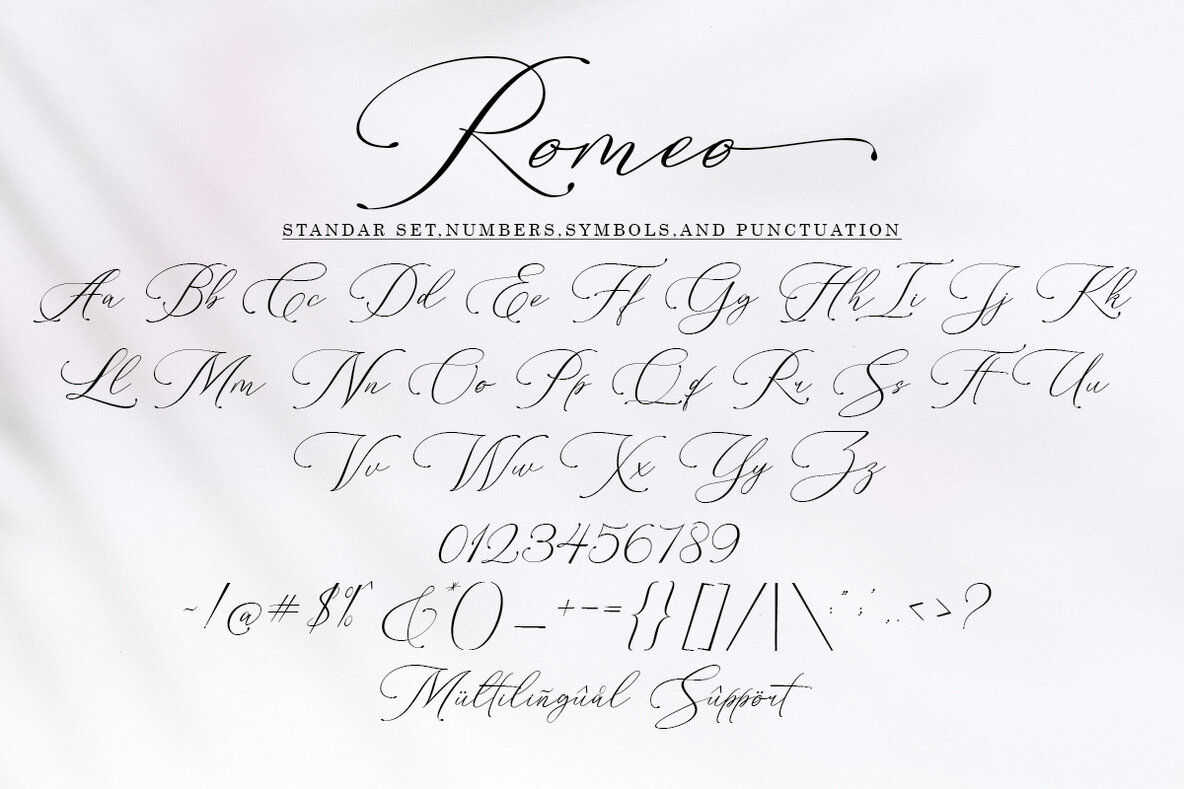 Romeo
STANDAR SET,NUMBERS,SYMBOLS,AND PUNCTUATION
Aa Bb Cc Dd Ee Ff Gg Hh Iı Jj Kk
Ll Mm Nn Oo Pp Qq Rr Ss Tt Uu
Vv Ww Xx Yy Zz
0123456789
~!@#$%^&*()_+-={}[]/|\:";',.<>?
Mültılıñgûål Sûppört